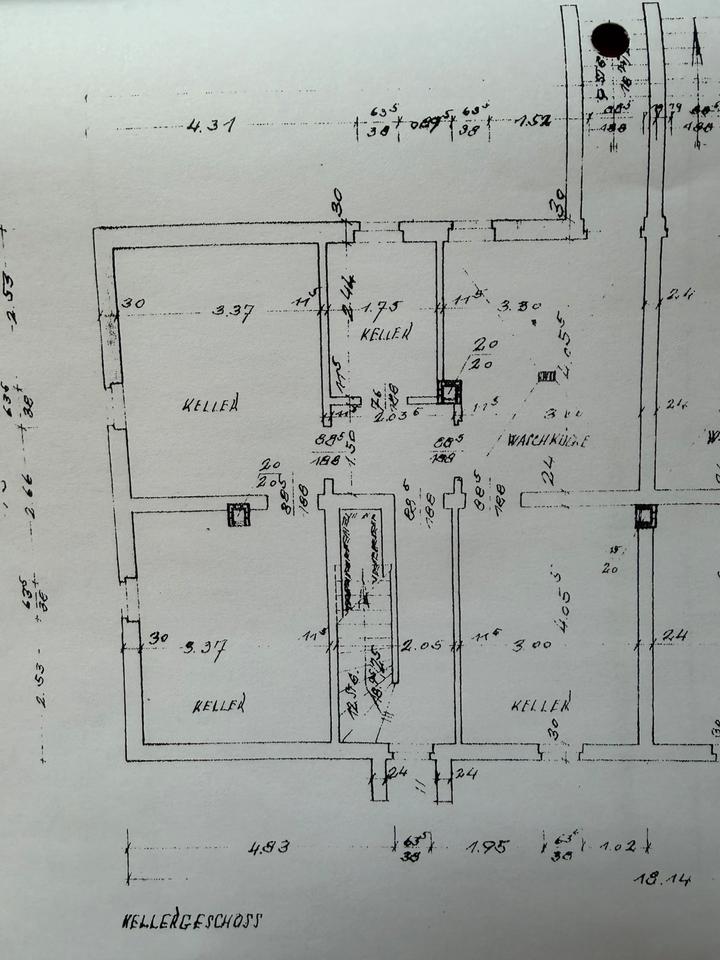 4.31
63⁵
38
63⁵
38
1.52
88⁵
188
88⁵
188
30
30
2.44
30
3.37
11⁵
1.75
11⁵
24
KELLER
20
20
4.05⁵
11⁵
76
188
2.03⁵
11⁵
24
KELLER
88⁵
188
1.50
88⁵
188
WASCHKÜCHE
24
20
20
88⁵
188
188
88⁵
188
20
4.05⁵
30
3.37
11⁵
2.05
11⁵
3.00
24
KELLER
KELLER
30
24
24
2.53
63⁵
38
2.66
63⁵
38
2.53
4.83
63⁵
38
1.95
63⁵
38
1.02
18.14
KELLERGESCHOSS